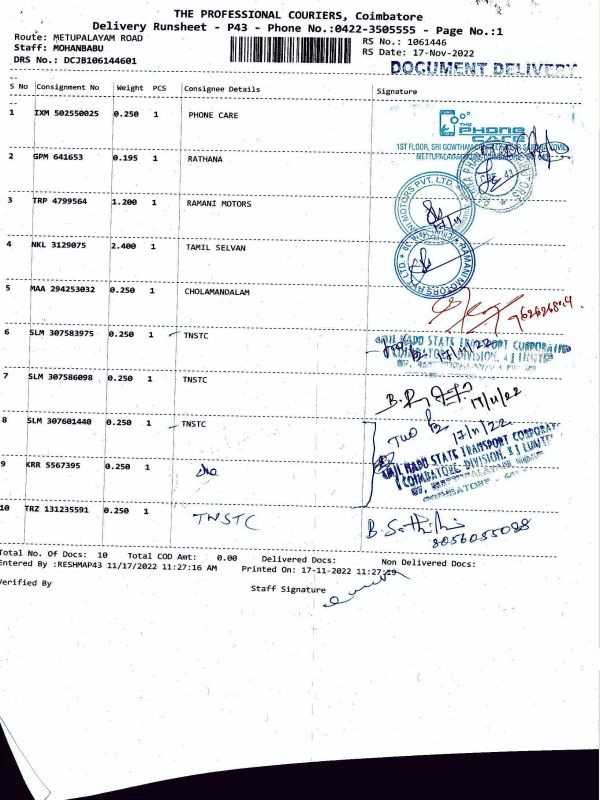 THE PROFESSIONAL COURIERS, Coimbatore
Delivery Runsheet - P43 - Phone No.:0422-3505555 - Page No.:1
Route: METUPALAYAM ROAD
Staff: MOHANBABU
DRS No.: DCJB106144601
RS No.: 1061446
RS Date: 17-Nov-2022
DOCUMENT DELIVERY
S No Consignment No Weight PCS Consignee Details Signature
1 IXM 502550025 0.250 1 PHONE CARE
THE PHONE CARE
1ST FLOOR, SRI GOWTHAM
2 GPM 641653 0.195 1 RATHANA
3 TRP 4799564 1.200 1 RAMANI MOTORS
MOTORS PVT. LTD.
4 NKL 3129075 2.400 1 TAMIL SELVAN
RAMANI MOTORS PVT. LTD.
5 MAA 294253032 0.250 1 CHOLAMANDALAM
6 SLM 307583975 0.250 1 TNSTC
NADU STATE TRANSPORT CORPORATION
17/11/22
7 SLM 307586098 0.250 1 TNSTC
17/11/22
8 SLM 307601440 0.250 1 TNSTC
Two
17/11/22
TAMIL NADU STATE TRANSPORT CORPORAT
(COIMBATORE-DIVISION.
COIMBATORE
9 KRR 5567395 0.250 1
10 TRZ 131235591 0.250 1 TNSTC
8056055088
Total No. Of Docs: 10 Total COD Amt: 0.00 Delivered Docs: Non Delivered Docs:
Entered By :RESHMAP43 11/17/2022 11:27:16 AM Printed On: 17-11-2022 11:27:19
Verified By Staff Signature